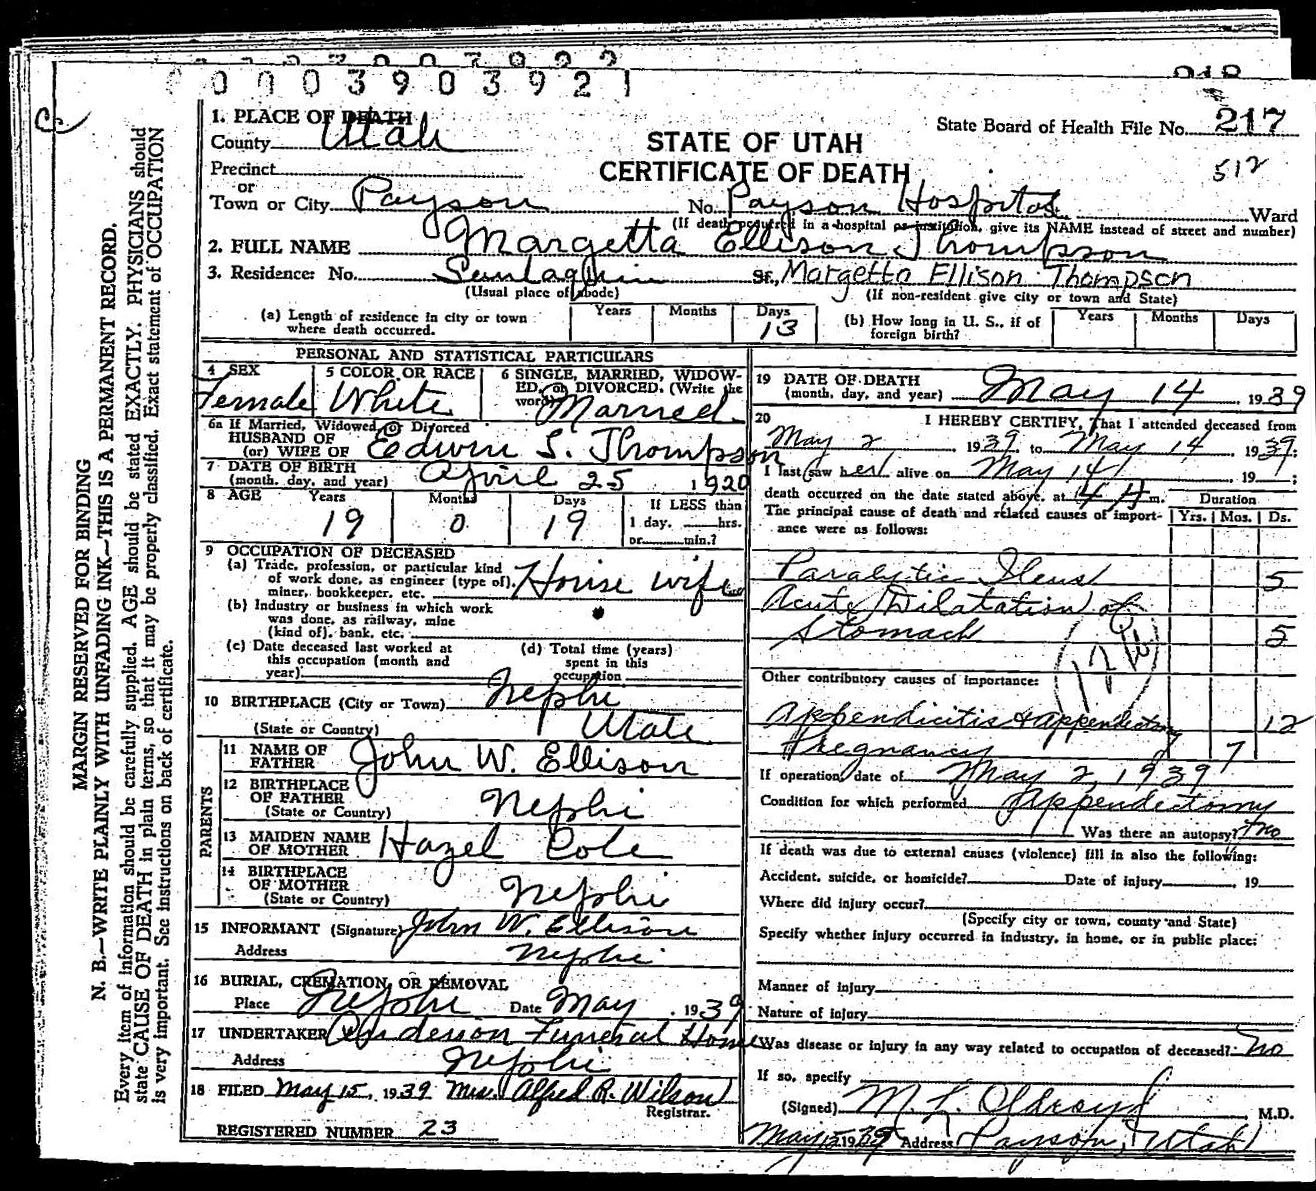 0 0 0 3 9 0 3 9 2 1
218
MARGIN RESERVED FOR BINDING
N. B.—WRITE PLAINLY WITH UNFADING INK—THIS IS A PERMANENT RECORD.
Every item of information should be carefully supplied. AGE should be stated EXACTLY. PHYSICIANS should
state CAUSE OF DEATH in plain terms, so that it may be properly classified. Exact statement of OCCUPATION
is very important. See instructions on back of certificate.
1. PLACE OF DEATH
County Utah
Precinct
or
Town or City Payson
STATE OF UTAH
CERTIFICATE OF DEATH
State Board of Health File No. 217
512
No. Payson Hospital Ward
(If death occurred in a hospital or institution, give its NAME instead of street and number)
2. FULL NAME Margetta Ellison Thompson
3. Residence: No. Santaquin St., Margetta Ellison Thompson
(Usual place of abode) (If non-resident give city or town and State)
(a) Length of residence in city or town where death occurred. Years Months Days 13
(b) How long in U. S., if of foreign birth? Years Months Days
PERSONAL AND STATISTICAL PARTICULARS
4 SEX Female
5 COLOR OR RACE White
6 SINGLE, MARRIED, WIDOWED, or DIVORCED. (Write the word) Married
6a If Married, Widowed or Divorced
HUSBAND OF
(or) WIFE OF Edwin S. Thompson
7 DATE OF BIRTH
(month, day, and year) April 25 1920
8 AGE Years 19 Months 0 Days 19 If LESS than
1 day, hrs.
or min.?
9 OCCUPATION OF DECEASED
(a) Trade, profession, or particular kind
of work done, as engineer (type of),
miner, bookkeeper, etc. House wife
(b) Industry or business in which work
was done, as railway, mine
(kind of), bank, etc.
(c) Date deceased last worked at
this occupation (month and
year)
(d) Total time (years)
spent in this
occupation
10 BIRTHPLACE (City or Town) Nephi
(State or Country) Utah
PARENTS
11 NAME OF
FATHER John W. Ellison
12 BIRTHPLACE
OF FATHER
(State or Country) Nephi
13 MAIDEN NAME
OF MOTHER Hazel Cole
14 BIRTHPLACE
OF MOTHER
(State or Country) Nephi
15 INFORMANT (Signature) John W. Ellison
Address Nephi
16 BURIAL, CREMATION, OR REMOVAL
Place Nephi Date May , 1939
17 UNDERTAKER Anderson Funeral Home
Address Nephi
18 FILED May 15, 1939 Mrs. Alfred R. Wilson
Registrar.
REGISTERED NUMBER 23
19 DATE OF DEATH
(month, day, and year) May 14, 1939
20 I HEREBY CERTIFY, That I attended deceased from
May 2, 1939, to May 14, 1939;
I last saw her alive on May 14, 19 ;
death occurred on the date stated above, at 4 A m.
The principal cause of death and related causes of importance were as follows:
Duration
Yrs. Mos. Ds.
Paralytic Ileus 5
Acute Dilatation of
Stomach 5
Other contributory causes of importance:
Appendicitis & appendectomy 12
Pregnancy 7
If operation, date of May 2, 1939
Condition for which performed Appendectomy
Was there an autopsy? no
If death was due to external causes (violence) fill in also the following:
Accident, suicide, or homicide? Date of injury , 19
Where did injury occur?
(Specify city or town, county and State)
Specify whether injury occurred in industry, in home, or in public place:
Manner of injury
Nature of injury
Was disease or injury in any way related to occupation of deceased? no
If so, specify
(Signed) M. L. Oldroyd , M.D.
May 15 1939 Address Payson, Utah